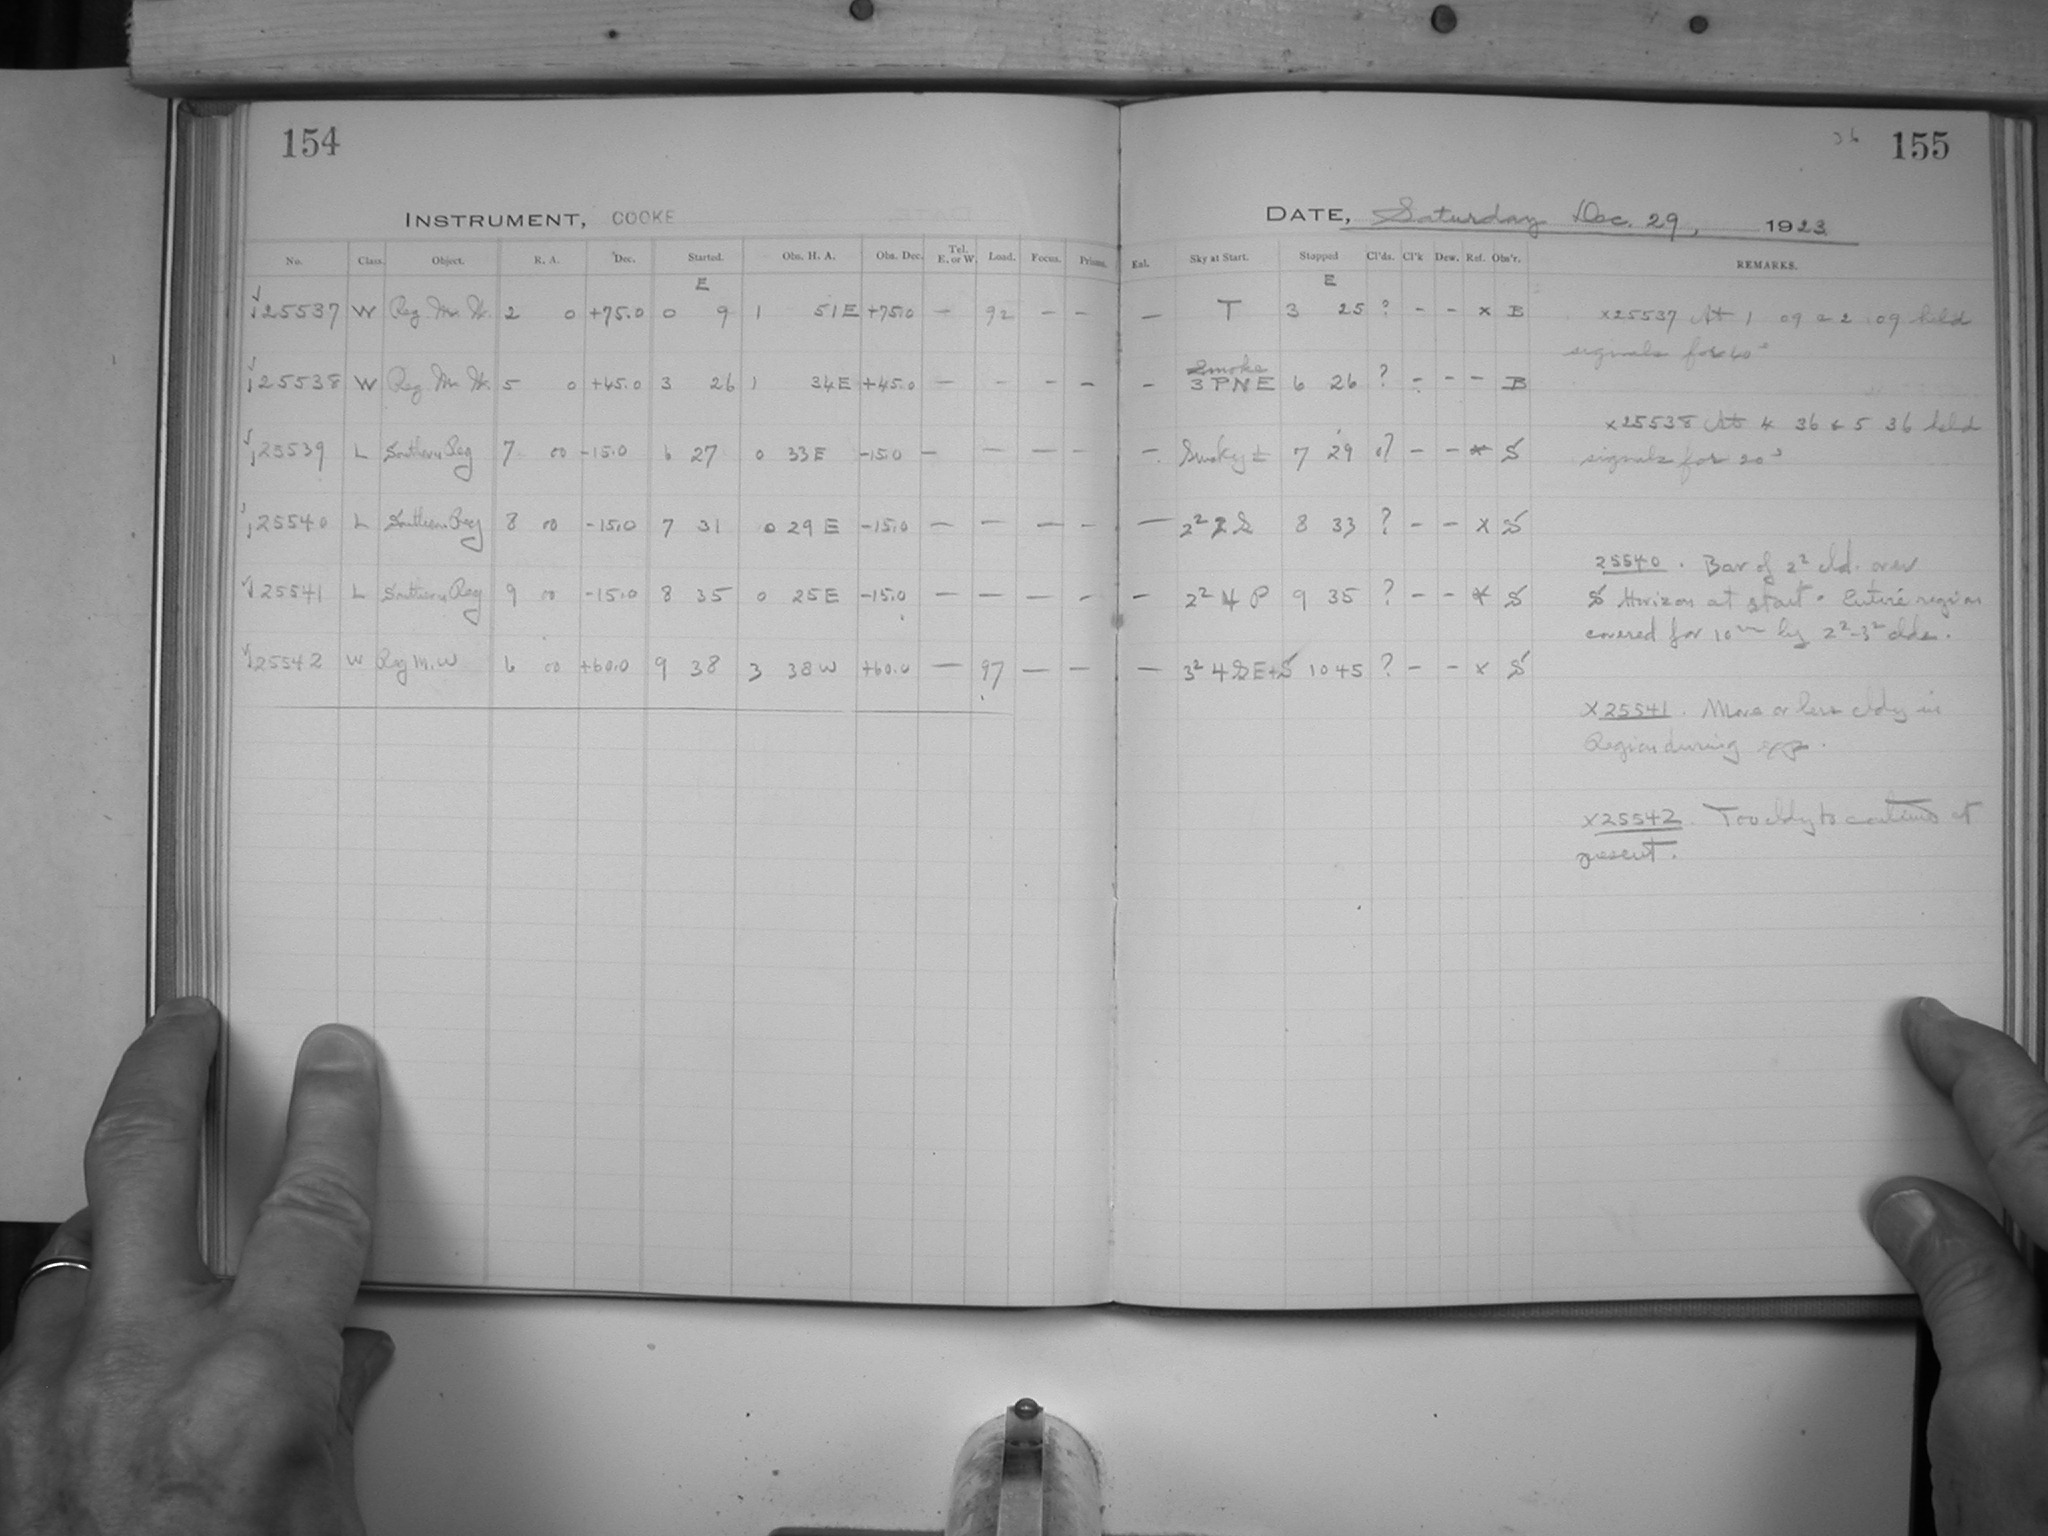 154
INSTRUMENT, COOKE
No. Class. Object. R. A. Dec. Started. Obs. H. A. Obs. Dec. Tel. E. or W. Load. Focus. Prisms.
E
25537 W Reg. M. W. 2 0 +75.0 0 9 1 51E +75.0 — 92 — —
25538 W Reg. M. W. 5 0 +45.0 3 26 1 34E +45.0 — — — —
25539 L Southern Reg 7 00 -15.0 6 27 0 33E -15.0 — — — —
25540 L Southern Reg 8 00 -15.0 7 31 0 29E -15.0 — — — —
25541 L Southern Reg 9 00 -15.0 8 35 0 25E -15.0 — — — —
25542 W Reg M.W 6 00 +60.0 9 38 3 38W +60.0 — 97 — —
36 155
DATE, Saturday Dec. 29, 1923
Enl. Sky at Start. Stopped Cl'ds. Cl'k Dew. Ref. Obs'r. REMARKS.
E
— T 3 25 ? - - x B
Smoke
— 3PNE 6 26 ? - - - B
— Smoky ± 7 29 0? - - x S
— 2² 2 S 8 33 ? - - x S
— 2² 4 P 9 35 ? - - x S
— 3² 4 SE+S 10 45 ? - - x S
x25537 At 1 09 & 2 09 held
signals for
x25538 At 4 36 & 5 36 held
signals for 20ˢ
25540. Bar of 2² cld. over
S Horizon at start. Entire region
covered for 10ᵐ by 2²-3² clds.
x25541. More or less cldy in
Region during exp.
x25542. Too cldy to continue at
present.